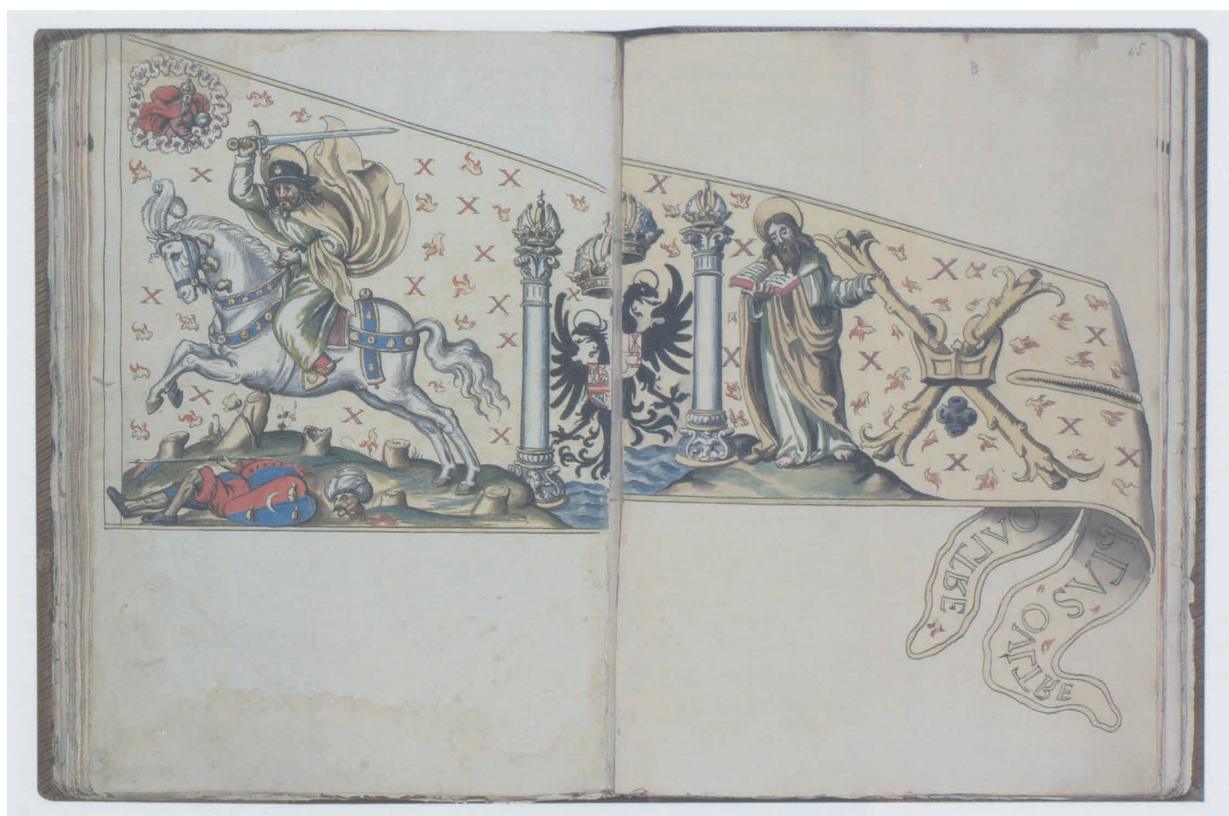 65
B
OVLTRE
PLVS
OVLTRE